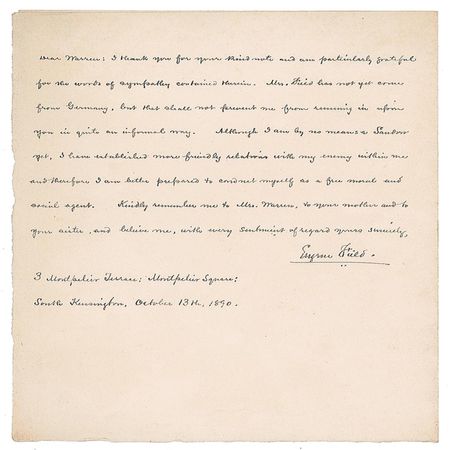 Dear Warren: I thank you for your kind note and am particularly grateful
for the words of sympathy contained therein. Mrs. Field has not yet come
from Germany, but that shall not prevent me from running in upon
you in quite an informal way. Although I am by no means a Sandow
yet, I have established more friendly relations with my enemy within me
and therefore I am better prepared to conduct myself as a free moral and
social agent. Kindly remember me to Mrs. Warren, to your mother and to
your sister, and believe me, with every sentiment of regard yours sincerely,
Eugene Field.
3 Montpelier Terrace; Montpelier Square;
South Kensington, October 13th, 1890.